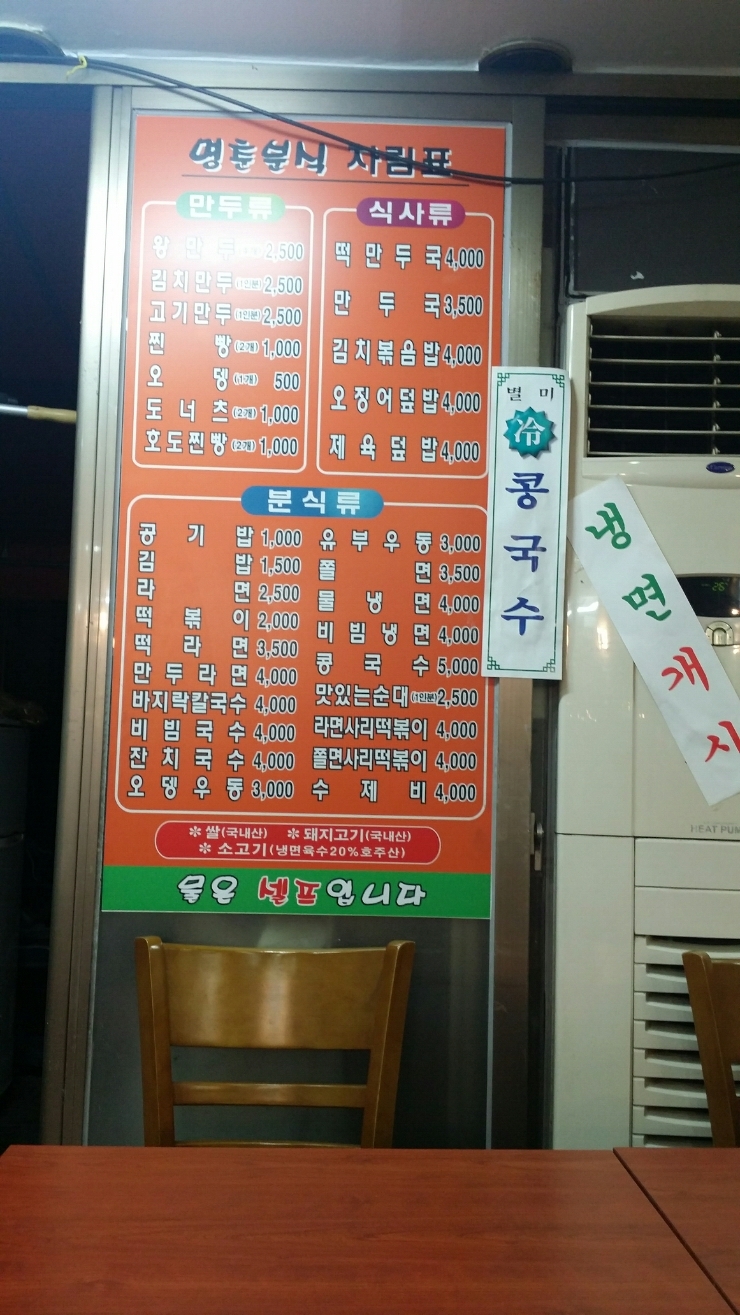 명훈분식 차림표
만두류
왕만두 2,500
김치만두(1인분) 2,500
고기만두(1인분) 2,500
찐빵(2개) 1,000
오뎅(1개) 500
도너츠(2개) 1,000
호도찐빵(2개) 1,000
식사류
떡만두국 4,000
만두국 3,500
김치볶음밥 4,000
오징어덮밥 4,000
제육덮밥 4,000
분식류
공기밥 1,000
김밥 1,500
라면 2,500
떡볶이 2,000
떡라면 3,500
만두라면 4,000
바지락칼국수 4,000
비빔국수 4,000
잔치국수 4,000
오뎅우동 3,000
유부우동 3,000
쫄면 3,500
물냉면 4,000
비빔냉면 4,000
콩국수 5,000
맛있는순대(1인분) 2,500
라면사리떡볶이 4,000
쫄면사리떡볶이 4,000
수제비 4,000
* 쌀(국내산) * 돼지고기(국내산)
* 소고기(냉면육수20%호주산)
물은 셀프입니다
별미
冷
콩국수
냉면개시
HEAT PUM